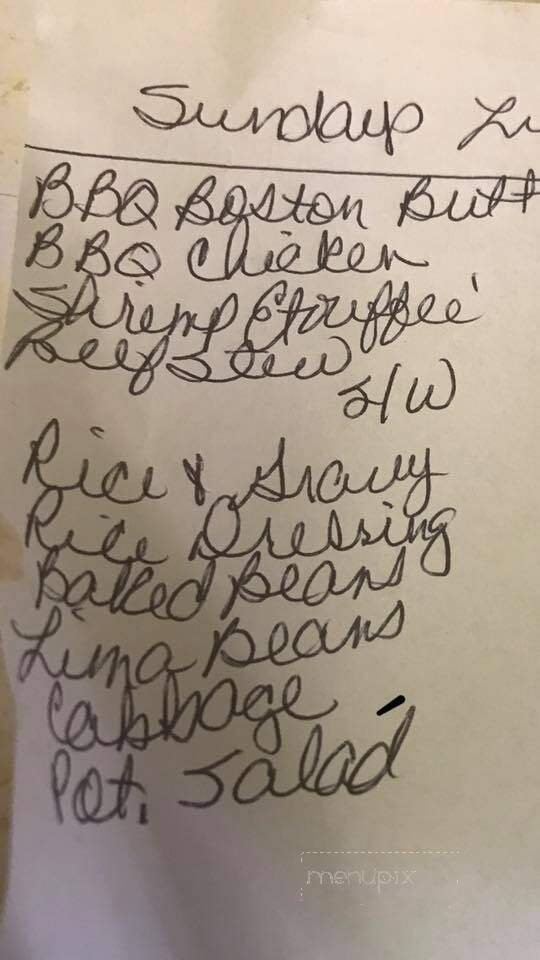 Sunday Lu
BBQ Boston Butt
BBQ Chicken
Shrimp Étouffée
Beef Stew
S/W
Rice & Gravy
Rice Dressing
Baked Beans
Lima Beans
Cabbage
Pot. Salad
menupix